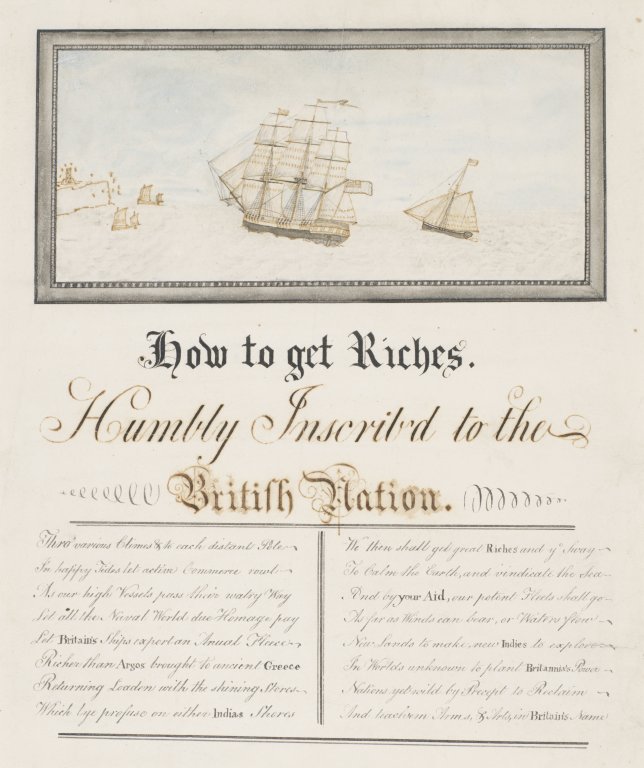 How to get Riches.
Humbly Inscrib'd to the
Britiſh Nation.
Thro' various Climes & to each distant Pole
In happy Tides let active Commerce rowl
As our high Vessels pass their watry Way
Let all the Naval World due Homage pay
Let Britain's Ships export an Anual Fleece
Richer than Argos brought to ancient Greece
Returning Loaden with the shining Stores
Which lye profuse on either India's Shores
We then shall get great Riches and ye Sway
To Calm the Earth, and vindicate the Sea
And by your Aid, our potent Fleets shall go
As far as Winds can bear, or Waters flow
New Lands to make, new Indies to explore
In Worlds unknown to plant Britannia's Power
Nations yet wild by Precept to Reclaim
And teach'em Arms, & Arts, in Britain's Name